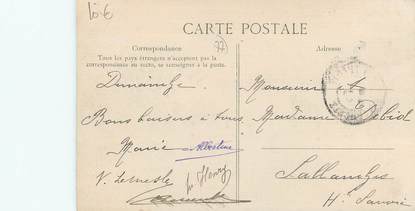 10 €
CARTE POSTALE
77
Correspondance
Adresse
Tous les pays étrangers n'acceptent pas la
correspondance au recto, se renseigner à la poste.
Dimanche
Bons baisers à tous
Marie Albertine
Monsieur &
Madame Debid
Sallanches
Hte Savoie